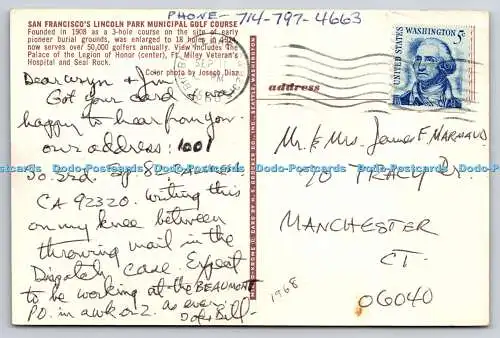 PHONE - 714-797-4663
SAN FRANCISCO'S LINCOLN PARK MUNICIPAL GOLF COURSE
Founded in 1908 as a 3-hole course on the site of early
pioneer burial grounds, was enlarged to 18 holes in 1914,
now serves over 50,000 golfers annually. View includes The
Palace of the Legion of Honor (center), Ft. Miley Veteran's
Hospital and Seal Rock.
Color photo by Joseph Diaz
Dear & Jim
Got your card & was
happy to hear from you.
our address: 1001
So. 3rd.
CA 92320. Writing this
on my knee between
throwing mail in the
Case. Expect
to be working at the BEAUMONT
P.O. in a wk or 2. as ever.
Bill
MIKE-KROME © CARD BY H. S. CROCKER CO., INC., SEATTLE, WASHINGTON
address
UNITED STATES
WASHINGTON
5¢
Mr. & Mrs. James F. Marmaud
70 TRACY Dr.
MANCHESTER
CT.
06040
1968
Dodo-Postcards Dodo-Postcards Dodo-Postcards Dodo-Postcards Dodo-Postcards